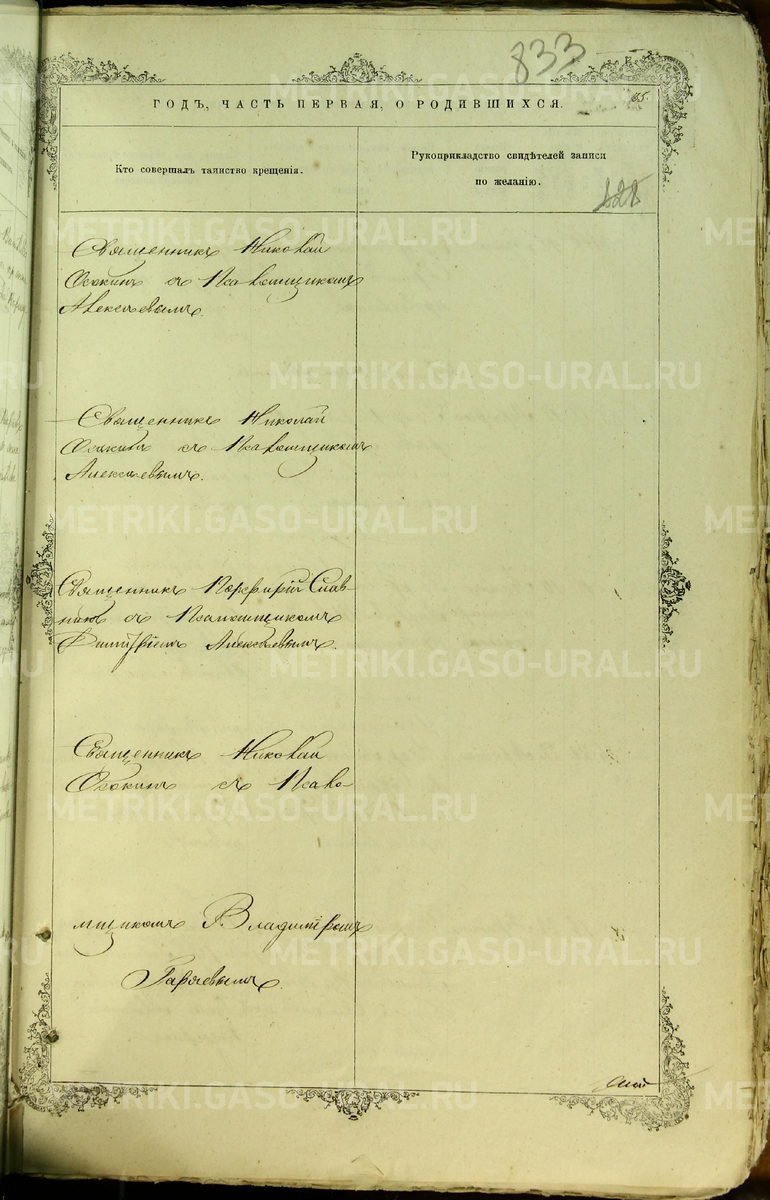 833
65.
ГОДЪ, ЧАСТЬ ПЕРВАЯ, О РОДИВШИХСЯ.
Кто совершалъ таинство крещенія.
Рукоприкладство свидѣтелей записи
по желанію.
Священникъ Николай
Осокинъ съ Псаломщикомъ
Алексѣевымъ.
Священникъ Николай
Осокинъ съ Псаломщикомъ
Алексѣевымъ.
Священникъ Порфирій Слав-
нинъ съ Псаломщикомъ
Димитріемъ Алексѣевымъ.
Священникъ Николай
Осокинъ съ Псало-
мщикомъ Владиміромъ
Гаряевымъ.
METRIKI.GASO-URAL.RU